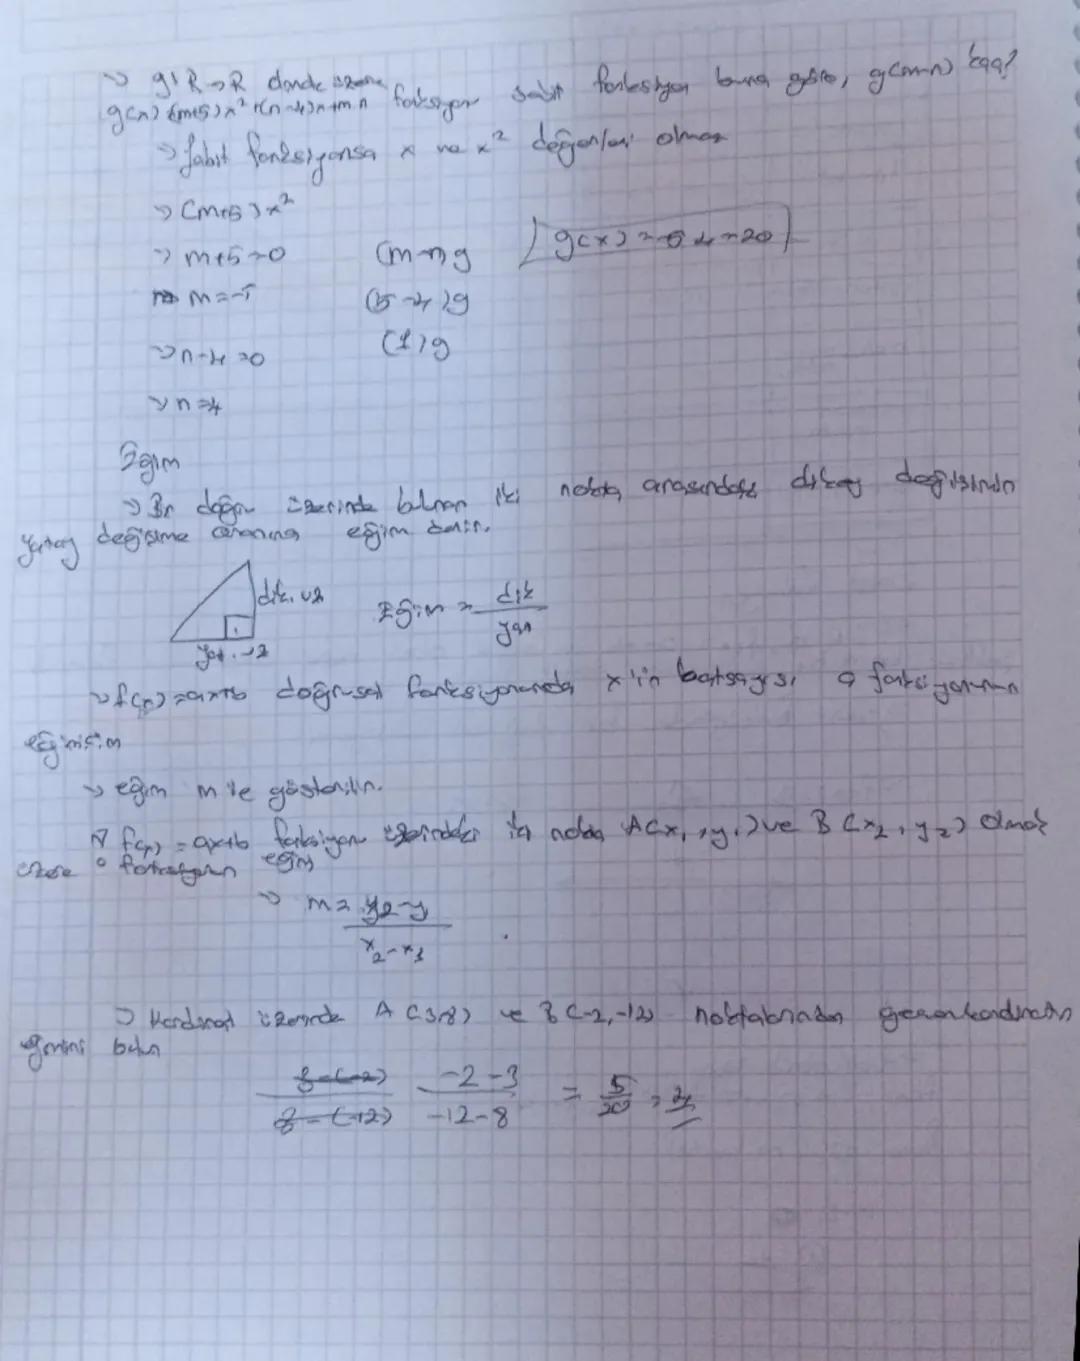 → g: R→R fonksiyon sabit fonksiyon buna göre, g(m-n) kaç?
g(x) (m+5)x² +(n-4)x+m.n
→ Sabit fonksiyonsa x ve x² değerleri olmaz
→ (m+5)x²
→ m+5=0 (m-n)g g(x)=-5.4=-20
m=-5 (5-4)g
→ n-4=0 (1)g
→ n=4
Eğim
→ Bir doğru üzerinde bulunan iki nokta arasındaki dikey değişimin
yatay değişime oranına eğim denir.
dik. u2 Eğim = dik
yat. u2 yat
→ f(x)=ax+b doğrusal fonksiyonunda x'in katsayısı o fonksiyonun
eğimisim
→ eğim m ile gösterilir.
f(x) = ax+b fonksiyon üzerindeki iki nokta A(x₁, y₁) ve B(x₂, y₂) olmak
üzere o fonksiyonun eğimi
→ m= y2-y1
x2-x1
→ Kordinat üzerinde A(3,8) ve B(-2,-12) noktalarından geçen
eğimini bulun
8-(-2) -2-3 = 5
8-(-12) -12-8 20